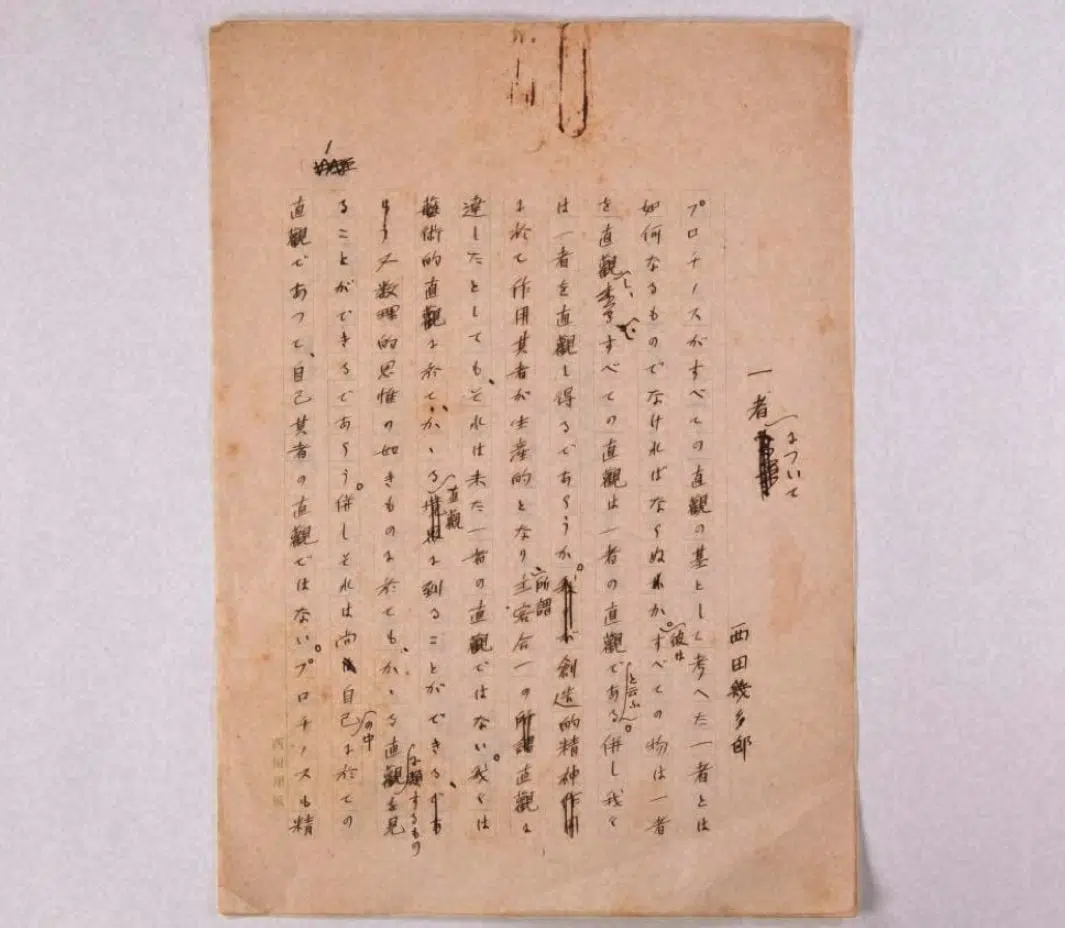 一者について
西田幾多郎
プロチノスがすべての直觀の基として考へた一者とは
如何なるものでなければならぬか。彼はすべての物は一者
を直觀し、すべての直觀は一者の直觀であると云ふ。併し我々
は一者を直觀し得るであらうか。我々が創造的精神
に於て作用其者が生産的となり所謂主客合一の直觀に
達したとしても、それは未た一者の直觀ではない。我々は
藝術的直觀に於て、かゝる直觀に到ることができる、
又数理的思惟の如きものに於ても、かゝる直觀に類するものを見
ることができるであらう。併しそれは尚自己の中に於ての
直觀であつて、自己其者の直觀ではない。プロチノスも精
1